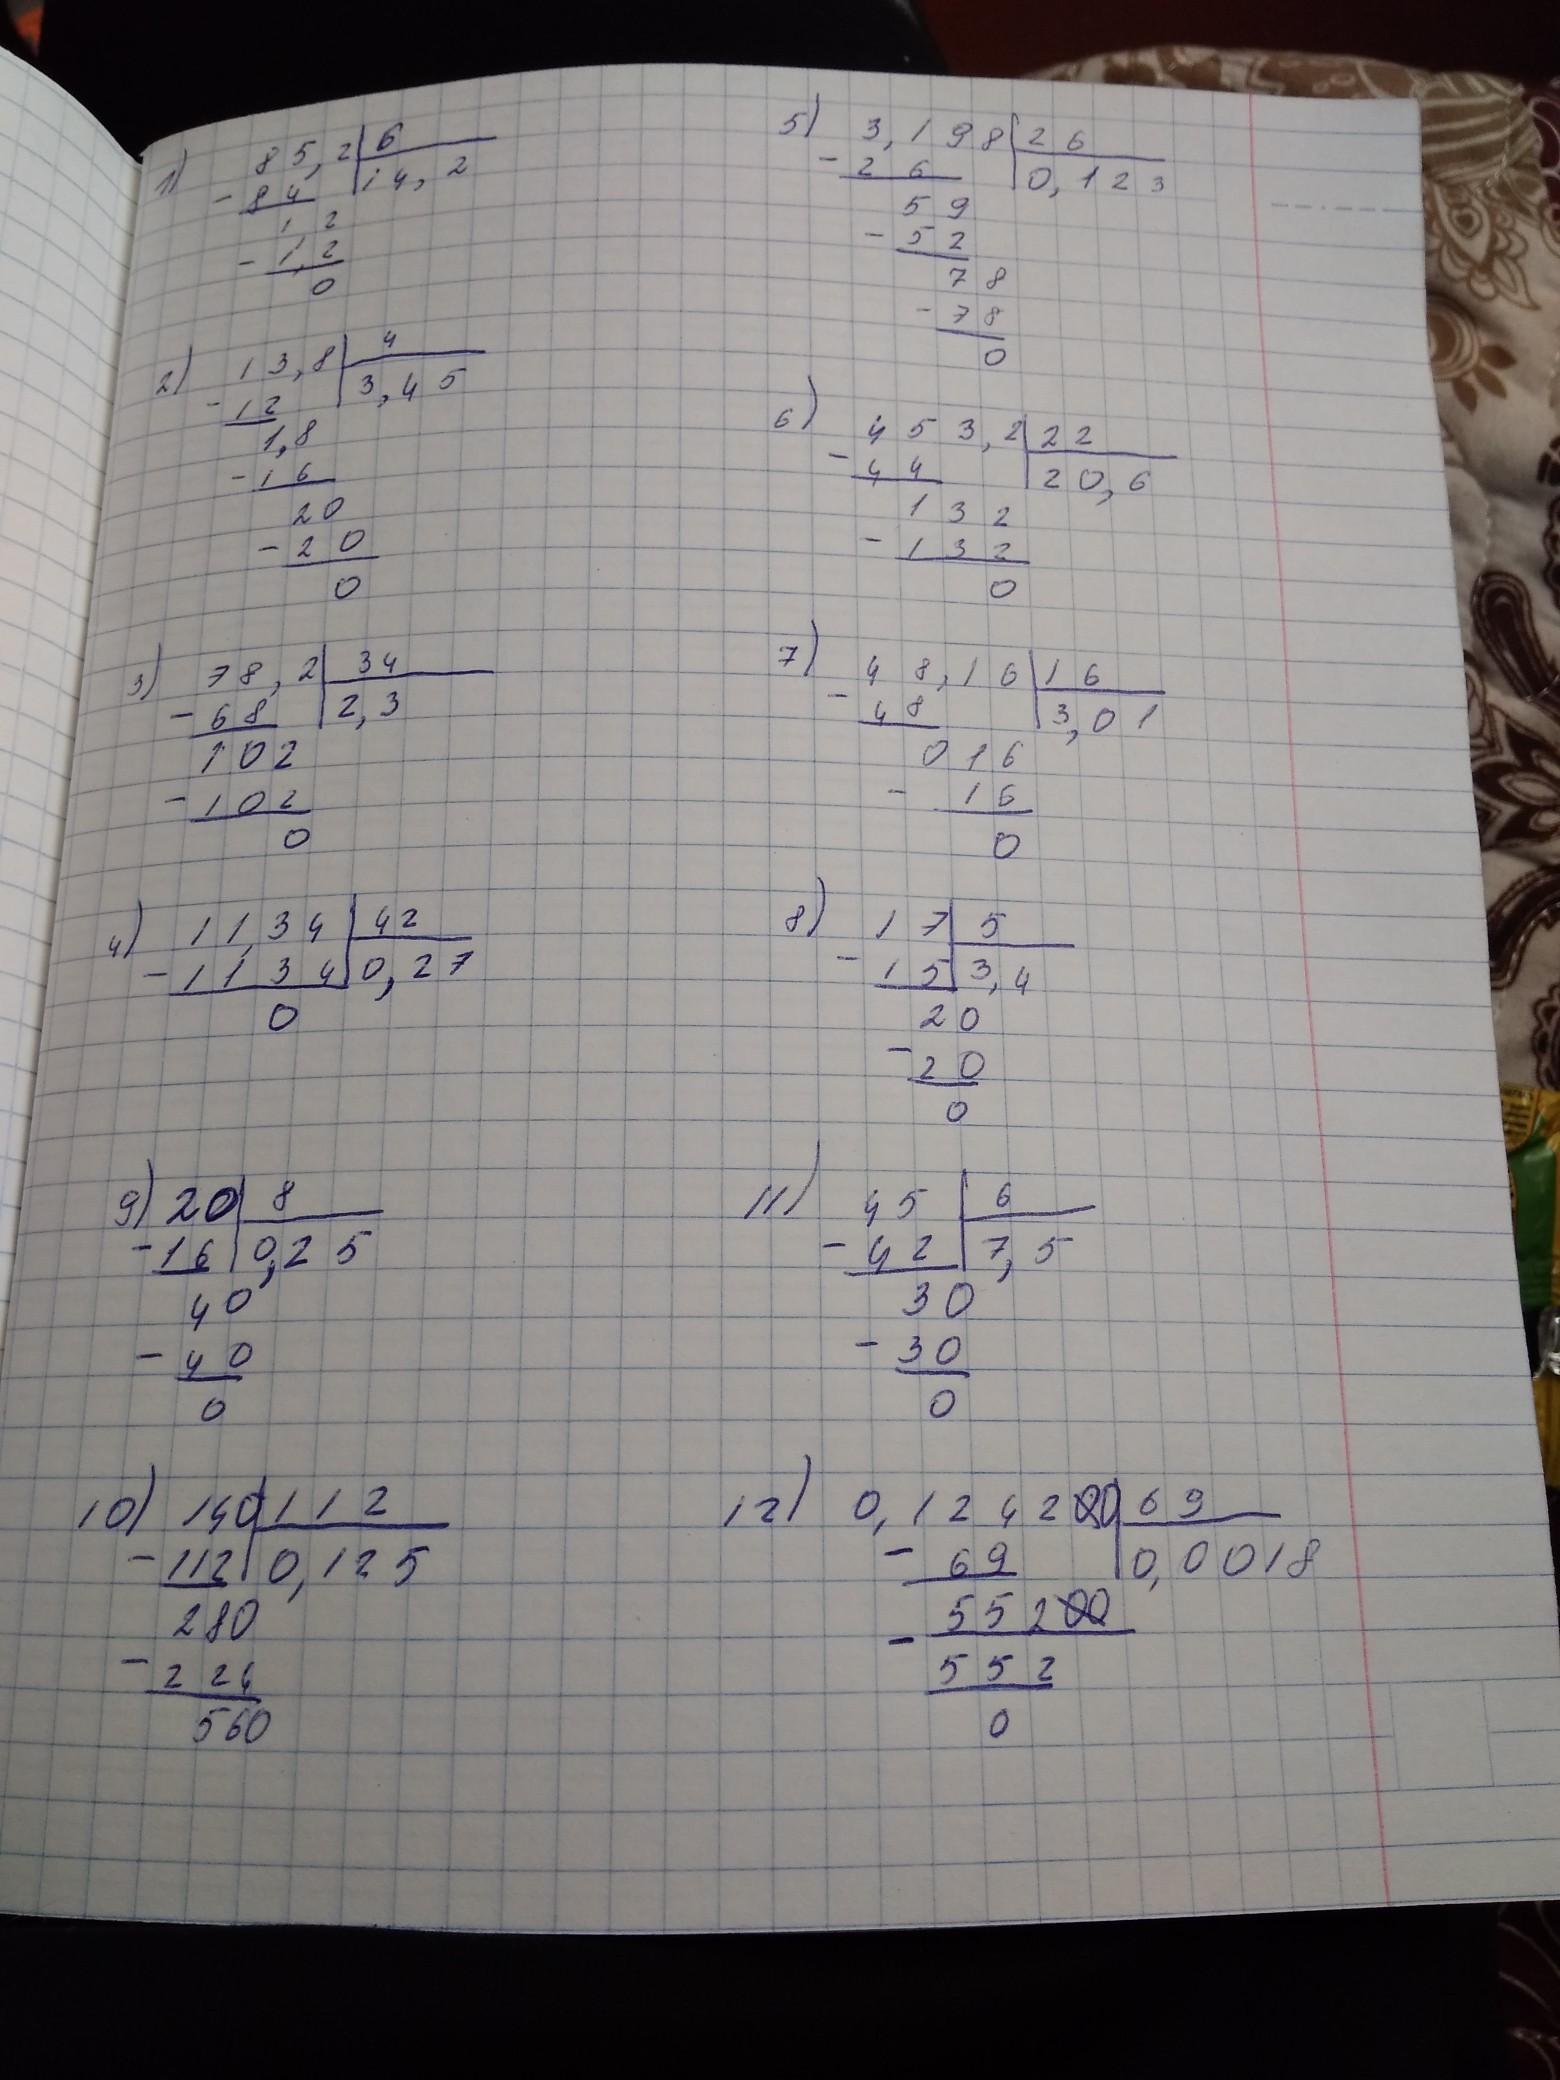 1) 85,2 6
- 84 14,2
1 2
- 1,2
0
2) 13,8 4
- 12 3,45
1,8
- 16
20
- 20
0
3) 78,2 34
- 68 2,3
102
- 102
0
4) 11,34 42
- 1134 0,27
0
5) 3,198 26
- 26 0,123
59
- 52
78
- 78
0
6) 453,2 22
- 44 20,6
132
- 132
0
7) 48,16 16
- 48 3,01
016
- 16
0
8) 17 5
- 15 3,4
20
- 20
0
9) 20 8
- 16 0,25
40
- 40
0
10) 140 112
- 112 0,125
280
- 224
560
11) 45 6
- 42 7,5
30
- 30
0
12) 0,124200 69
- 69 0,0018
55200
- 552
0